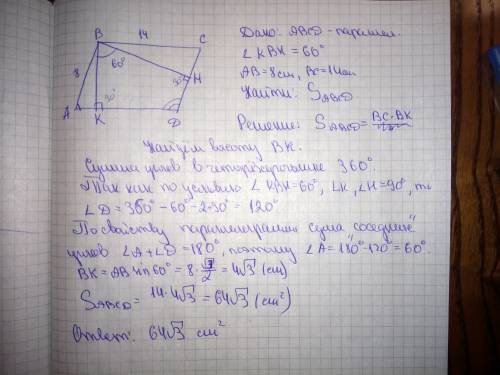 14
B
C
60°
8
H
90°
90°
A
K
D
Дано: ABCD - параллел.
∠KBH = 60°
AB = 8 см, BC = 14 см
Найти: S ABCD
Решение: S ABCD = BC · BK
Найдем высоту BK.
Сумма углов в четырёхугольнике 360°.
Так как по условию ∠KBH = 60°, ∠K, ∠H = 90°, то
∠D = 360° - 60° - 2·90° = 120°
По свойству параллелограмма сумма соседних
углов ∠A + ∠D = 180°, поэтому ∠A = 180° - 120° = 60°.
BK = AB sin 60° = 8 · √3/2 = 4√3 (см)
S ABCD = 14 · 4√3 = 64√3 (см²)
Ответ: 64√3 см²